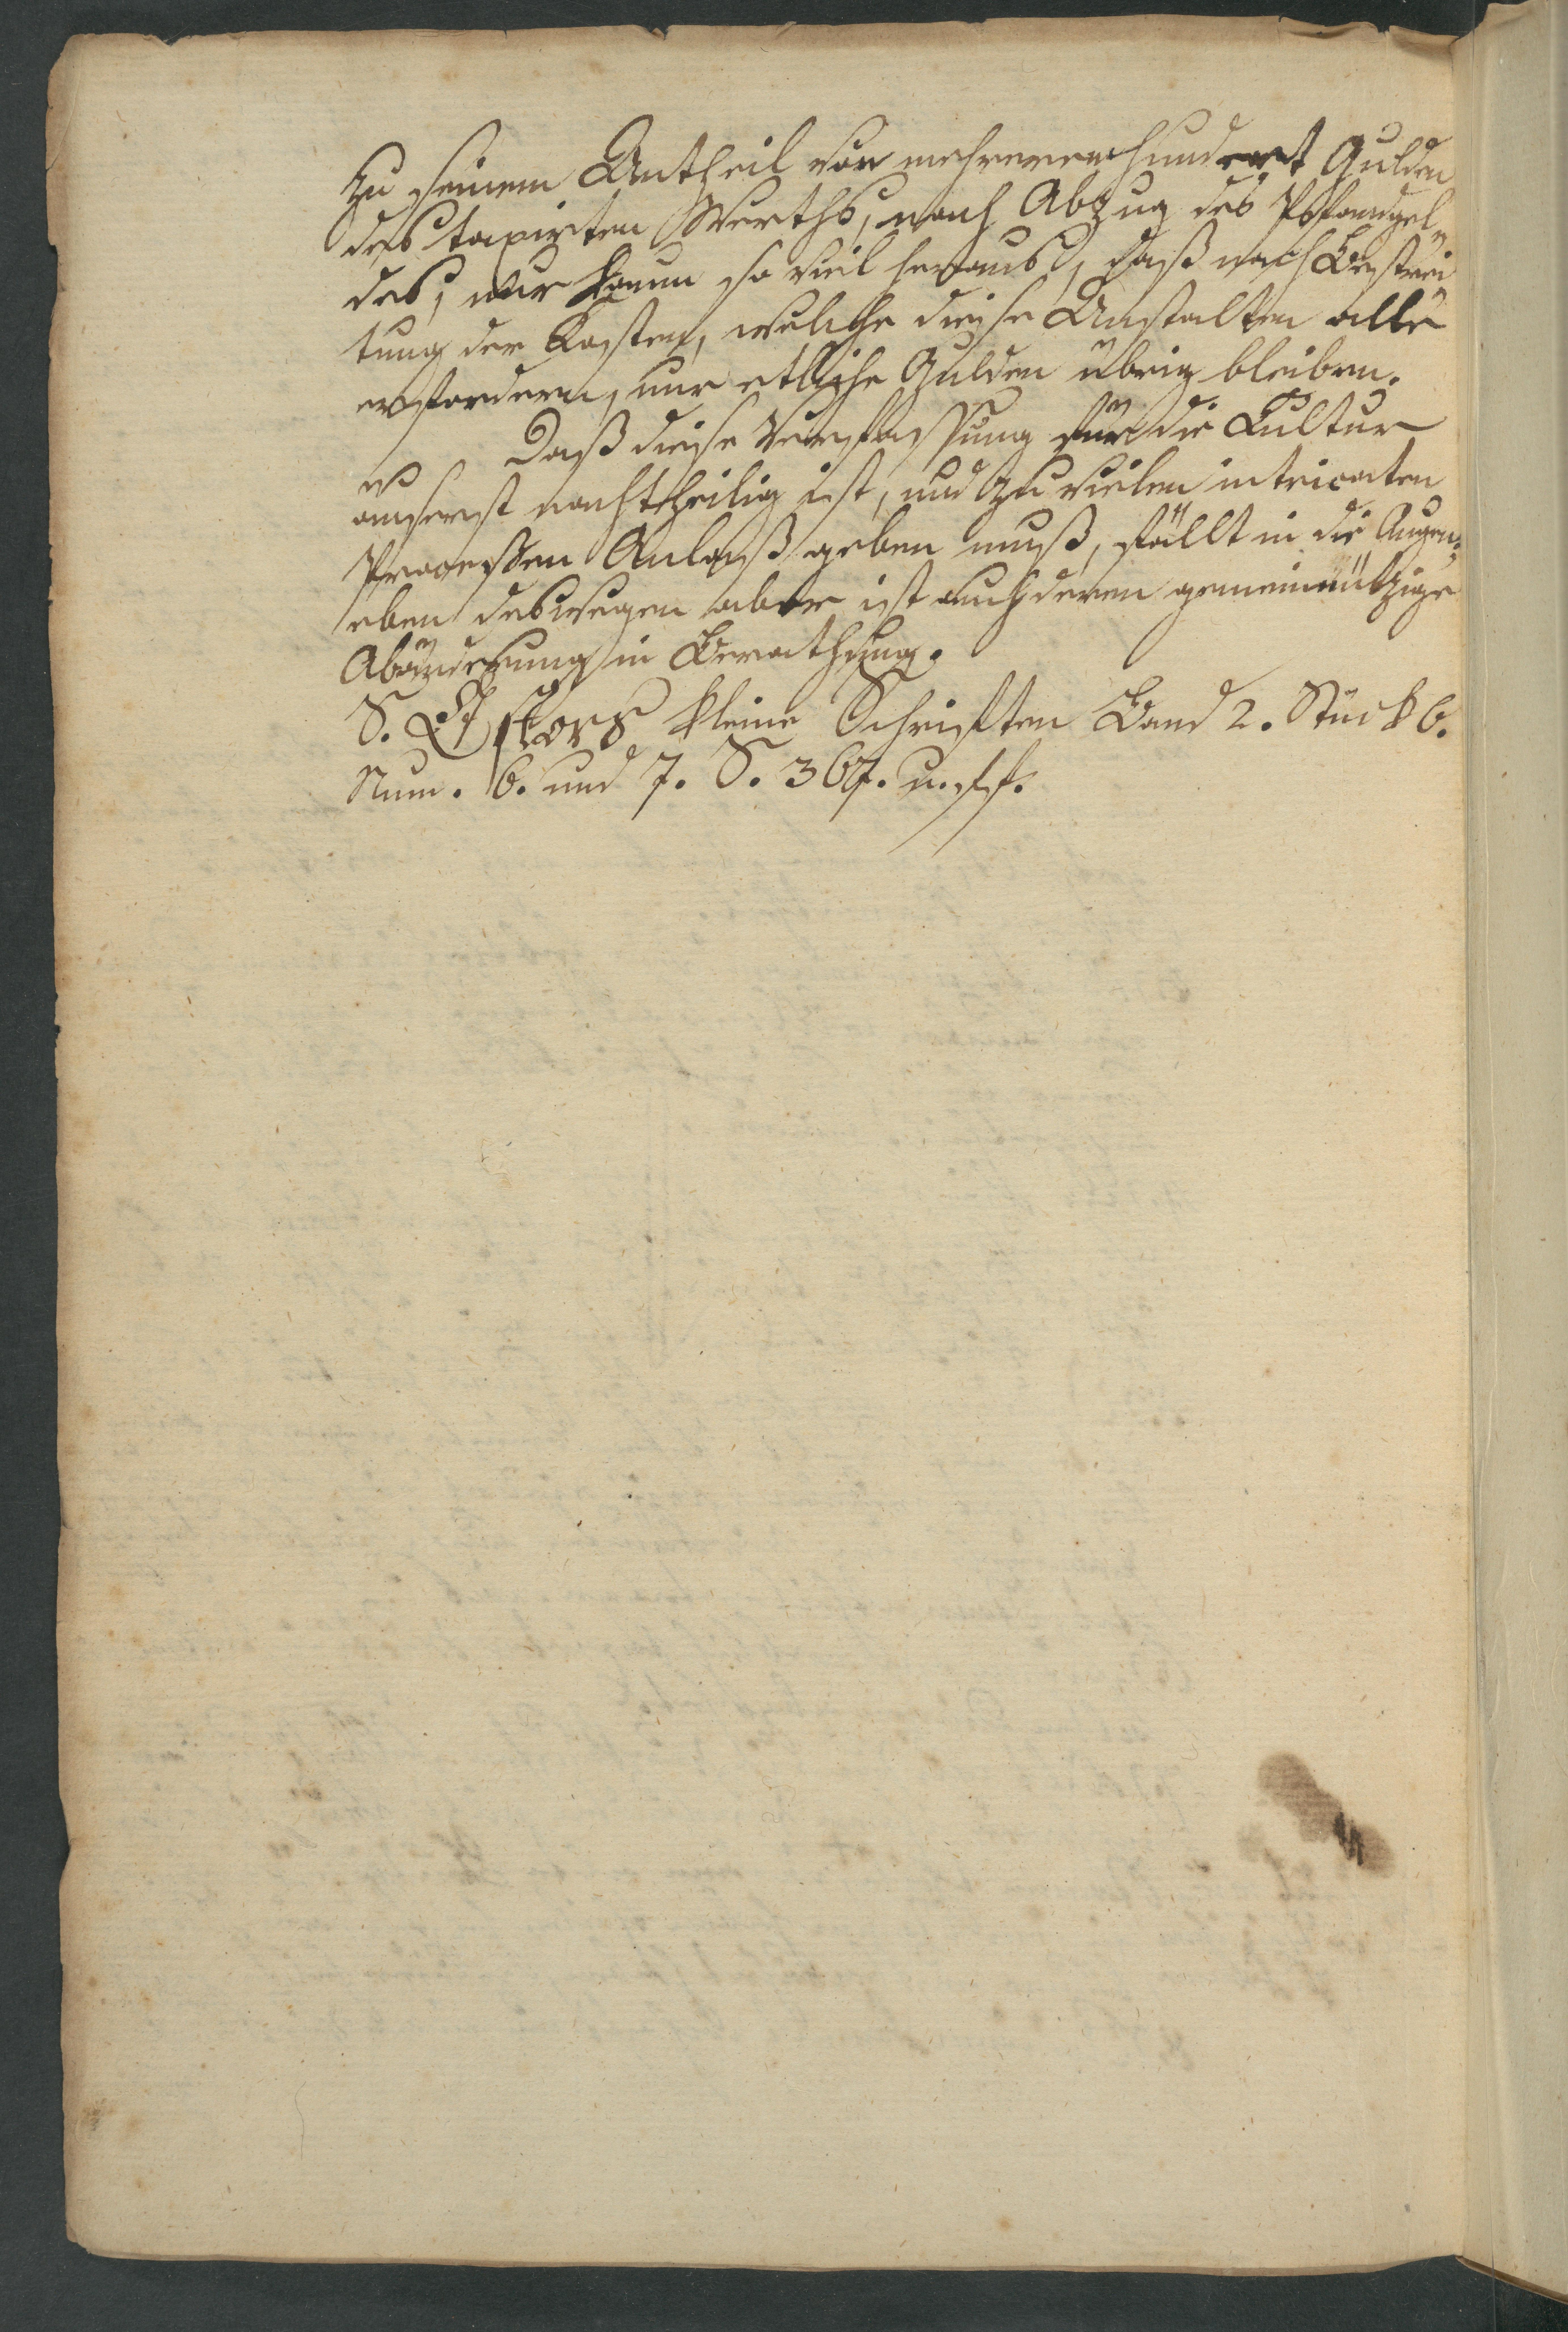 zu seinem Antheil von mehreren hundert Gulden
des taxirten Werths, nach Abzug des Pfandgel¬
des, nur kaum so viel heraus, daß nach Bestrei¬
tung der Kosten, welche diese Anstalten alle
erfordern, nur etliche Gulden übrig bleiben.
Daß diese Verfassung für die Cultur
äuserst nachtheilig ist, und zu vielen intricaten
Processen Anlaß geben muß, fällt in die Augen,
eben deswegen aber ist auch deren gemeinnützige
Abänderung in Berathung.
S. Estors kleine Schriften Band 2. Stück 6.
Num. 6. und 7. S. 367. u. ff.